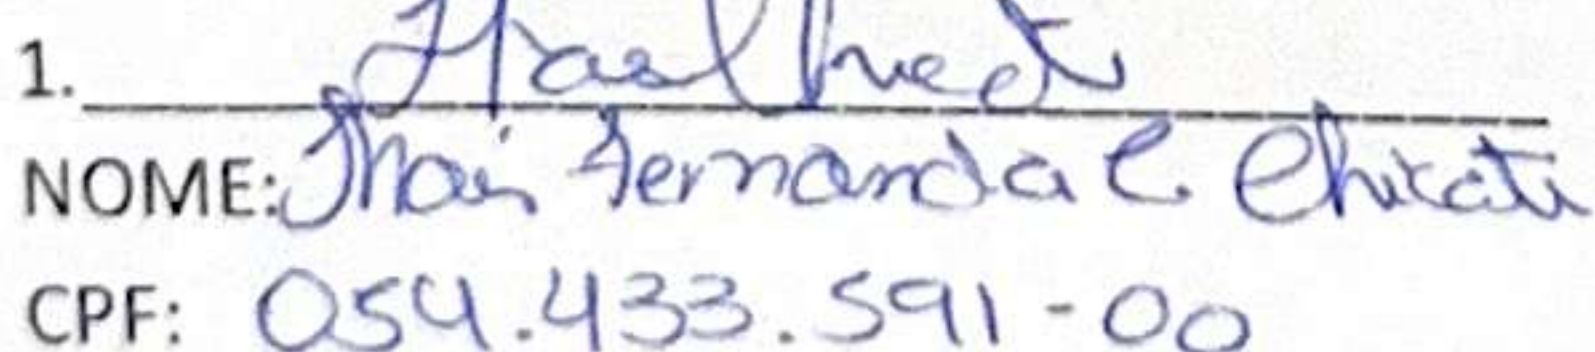 1.
NOME: Thais Fernanda C. Chicati
CPF: 054.433.591-00